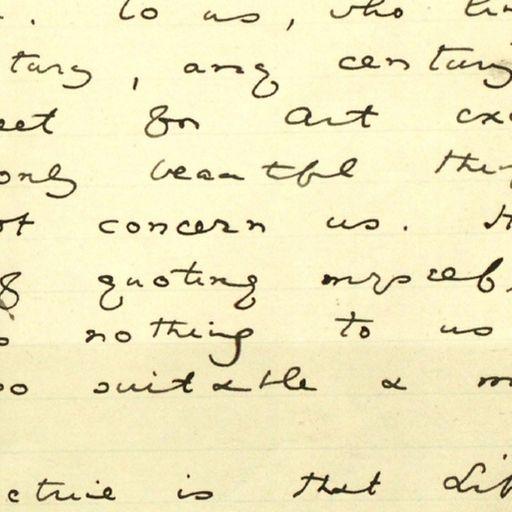 . To us, who li
tury, any century
ect for art ex
only beautful the
ot concern us. It
of quoting myself,
s nothing to us
so suitable a m
ctrine is that Lif